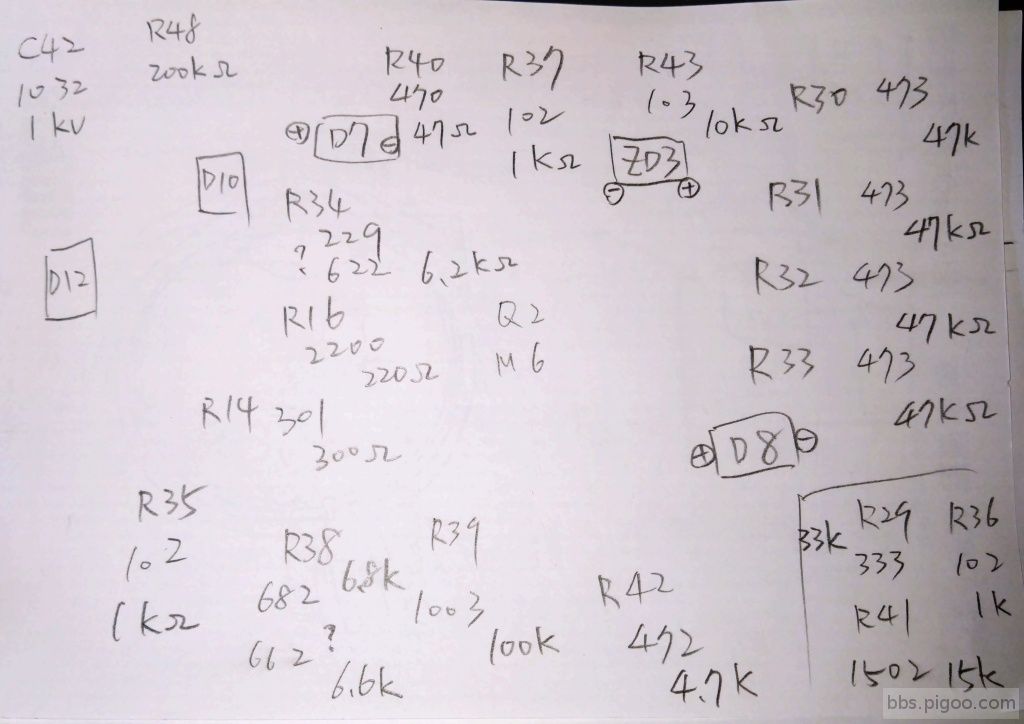 C42
1032
1kV
R48
200kΩ
R40
470
47Ω
⊕ D7 ⊖
R37
102
1kΩ
R43
103
10kΩ
ZD3
⊖ ⊕
R30 473
47k
R31 473
47kΩ
R32 473
47kΩ
R33 473
47kΩ
⊕ D8 ⊖
D10
D12
R34
229
? 622 6.2kΩ
R16
2200
220Ω
Q2
M6
R14 301
300Ω
R35
102
1kΩ
R38
682 6.8k
662 ?
6.6k
R39
1003
100k
R42
472
4.7k
R29
33k 333
R36
102
1k
R41
1502 15k
bbs.pigoo.com